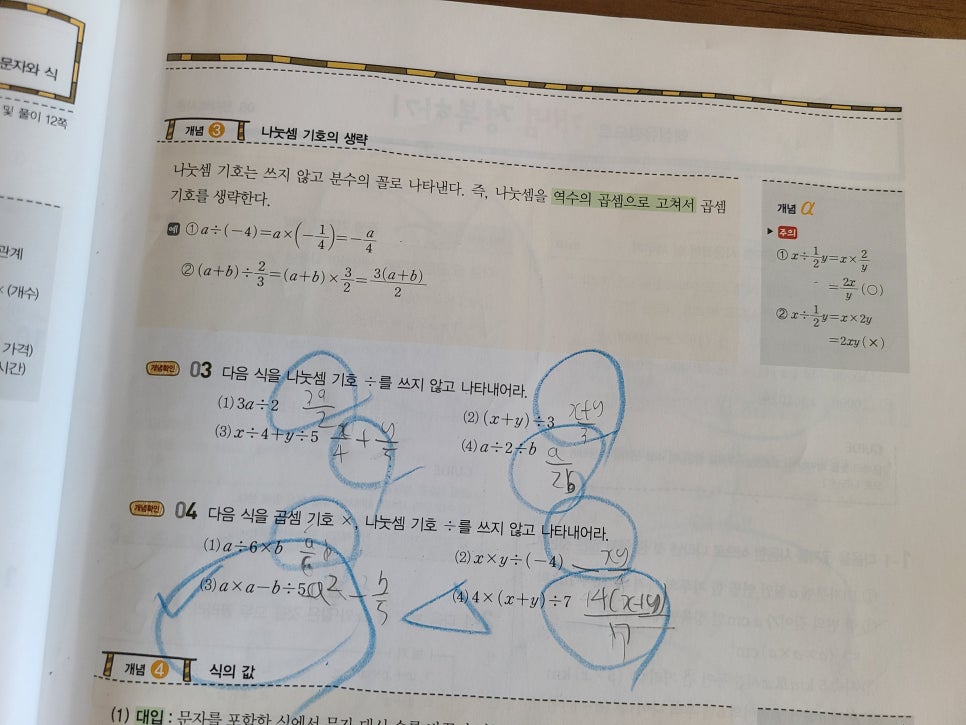 문자와 식
및 풀이 12쪽
관계
(개수)
가격)
시간)
개념 3 나눗셈 기호의 생략
나눗셈 기호는 쓰지 않고 분수의 꼴로 나타낸다. 즉, 나눗셈을 역수의 곱셈으로 고쳐서 곱셈
기호를 생략한다.
예 ① a÷(-4)=a×(-1/4)=-a/4
② (a+b)÷2/3=(a+b)×3/2=3(a+b)/2
개념 α
▶ 주의
① x÷1/2y=x×2/y
=2x/y (○)
② x÷1/2y=x×2y
=2xy (×)
개념확인 03 다음 식을 나눗셈 기호 ÷를 쓰지 않고 나타내어라.
(1) 3a÷2 3a/2 (2) (x+y)÷3 x+y/3
(3) x÷4+y÷5 x/4+y/5 (4) a÷2÷b a/2b
개념확인 04 다음 식을 곱셈 기호 ×, 나눗셈 기호 ÷를 쓰지 않고 나타내어라.
(1) a÷6×b a/6 b (2) x×y÷(-4) -xy/4
(3) a×a-b÷5 a²-b/5 (4) 4×(x+y)÷7 4(x+y)/7
개념 4 식의 값
(1) 대입 : 문자를 포함한 식에서 문자 대신 수를